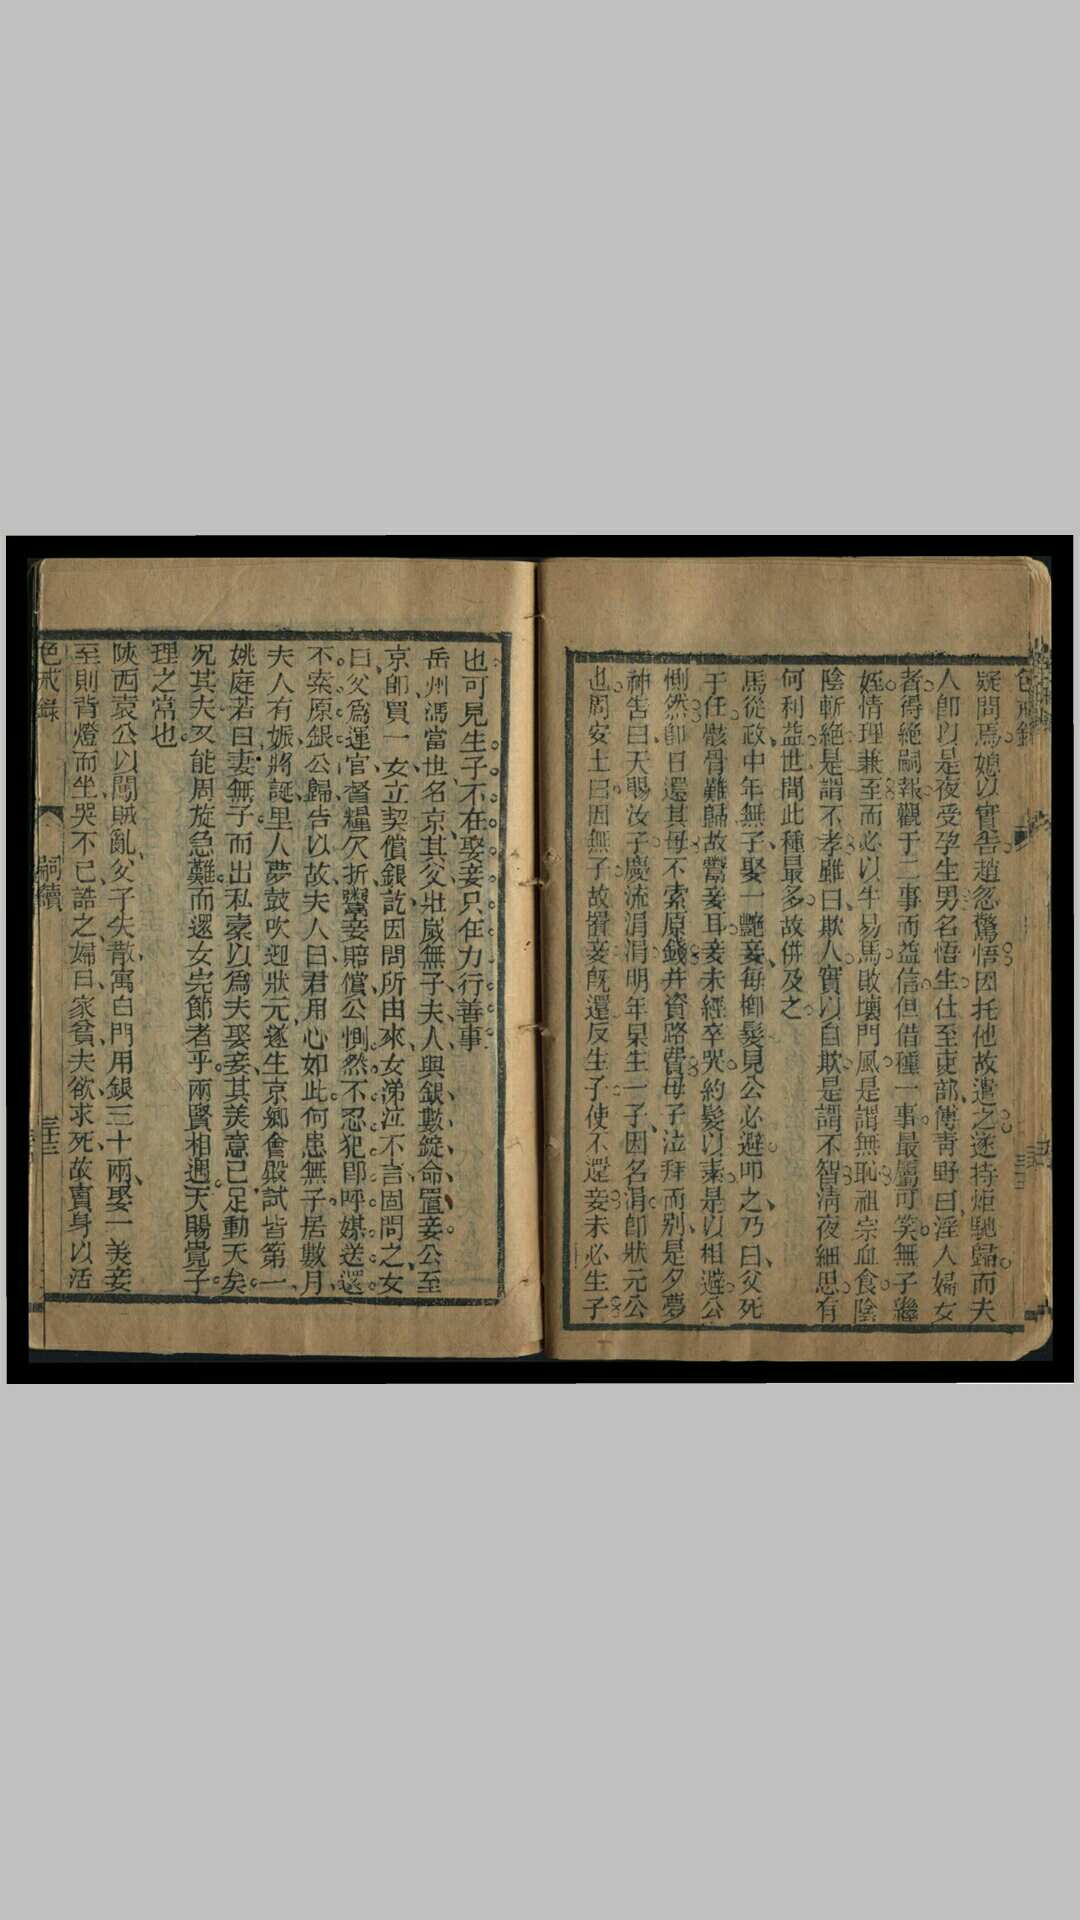 疑問焉媳以實告趙忽驚悟因托他故遣之遂持炬馳歸而夫
人卽以是夜受孕生男名悟生仕至吏部傅靑野曰淫人婦女
者得絶嗣報觀于二事而益信但借種一事最屬可笑無子繼
姪情理兼至而必以牛易馬敗壞門風是謂無恥祖宗血食陰
陰斬絶是謂不孝雖曰欺人實以自欺是謂不智淸夜細思有
何利益世間此種最多故併及之
馬從政中年無子娶一艷妾每櫛髮見公必避叩之乃曰父死
于任骸骨難歸故鬻妾耳妾未經卒哭約髮以素是以相避公
惻然卽日還其母不索原錢幷資路費母子泣拜而别是夕夢
神告曰天賜汝子慶流涓涓明年果生一子因名涓卽狀元公
也周安士曰因無子故置妾旣還反生子使不還妾未必生子
色戒錄
也可見生子不在娶妾只在力行善事
岳州馮當世名京其父壯歲無子夫人與銀數錠命置妾公至
京卽買一女立契償銀訖因問所由來女涕泣不言固問之女
曰父爲運官督糧欠折鬻妾賠償公惻然不忍犯卽呼媒送還
不索原銀公歸告以故夫人曰君用心如此何患無子居數月
夫人有娠將誕里人夢鼓吹迎狀元遂生京鄉會殿試皆第一
姚庭若曰妻無子而出私橐以爲夫娶妾其美意已足動天矣
况其夫又能周旋急難而還女完節者乎兩賢相遇天賜貴子
理之常也
陝西袁公以闖賊亂父子失散寓白門用銀三十兩娶一美妾
至則背燈而坐哭不已詰之婦曰家貧夫欲求死故賣身以活
色戒錄 嗣續